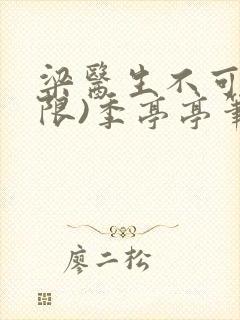 梁醫生不可
限)季亭亭筆
廖二松